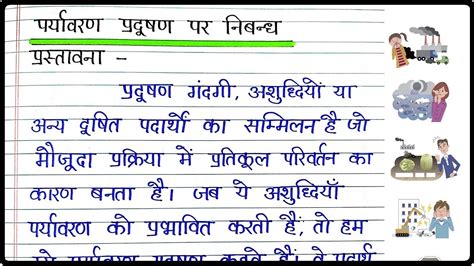 पर्यावरण प्रदूषण पर निबन्ध
प्रस्तावना -
प्रदूषण गंदगी, अशुद्धियों या
अन्य दूषित पदार्थों का सम्मिलन है जो
मौजूदा प्रक्रिया में प्रतिकूल परिवर्तन का
कारण बनता है। जब ये अशुद्धियाँ
पर्यावरण को प्रभावित करती हैं, तो हम
पर्यावरण प्रदूषण कहते हैं। ये पदार्थ